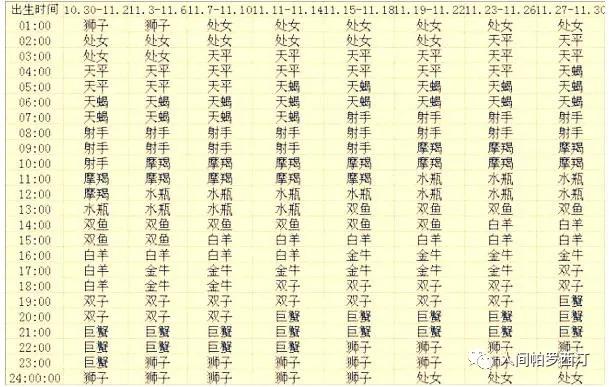 出生时间 10.30-11.2 11.3-11.6 11.7-11.10 11.11-11.14 11.15-11.18 11.19-11.22 11.23-11.26 11.27-11.30
01:00 狮子 狮子 处女 处女 处女 处女 处女 处女
02:00 处女 处女 处女 处女 处女 处女 天平 天平
03:00 处女 处女 天平 天平 天平 天平 天平 天平
04:00 天平 天平 天平 天平 天平 天平 天平 天蝎
05:00 天平 天平 天平 天蝎 天蝎 天蝎 天蝎 天蝎
06:00 天蝎 天蝎 天蝎 天蝎 天蝎 天蝎 天蝎 天蝎
07:00 天蝎 天蝎 天蝎 天蝎 射手 射手 射手 射手
08:00 射手 射手 射手 射手 射手 射手 射手 射手
09:00 射手 射手 射手 射手 射手 摩羯 摩羯 摩羯
10:00 射手 摩羯 摩羯 摩羯 摩羯 摩羯 摩羯 摩羯
11:00 摩羯 摩羯 摩羯 摩羯 摩羯 水瓶 水瓶 水瓶
12:00 摩羯 水瓶 水瓶 水瓶 水瓶 水瓶 水瓶 水瓶
13:00 水瓶 水瓶 水瓶 水瓶 双鱼 双鱼 双鱼 双鱼
14:00 双鱼 双鱼 双鱼 双鱼 双鱼 双鱼 白羊 白羊
15:00 双鱼 双鱼 白羊 白羊 白羊 白羊 白羊 白羊
16:00 白羊 白羊 白羊 白羊 金牛 金牛 金牛 金牛
17:00 白羊 金牛 金牛 金牛 金牛 金牛 金牛 双子
18:00 金牛 金牛 金牛 双子 双子 双子 双子 双子
19:00 双子 双子 双子 双子 双子 双子 双子 巨蟹
20:00 双子 双子 双子 巨蟹 巨蟹 巨蟹 巨蟹 巨蟹
21:00 巨蟹 巨蟹 巨蟹 巨蟹 巨蟹 巨蟹 巨蟹 巨蟹
22:00 巨蟹 巨蟹 巨蟹 巨蟹 狮子 狮子 狮子 狮子
23:00 巨蟹 狮子 狮子 狮子 狮子
24:00:00 狮子 狮子 狮子 狮子 处女 处女 处女
人间帕罗西汀